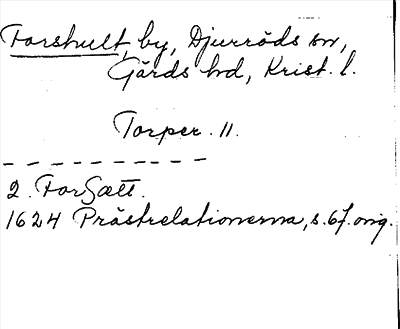 Forshult, by, Djurröds sn,
Gärds hd, Krist. l.
Torper. 11.
2. ForSætt.
1624 Prästrelationerna, s. 67. orig.